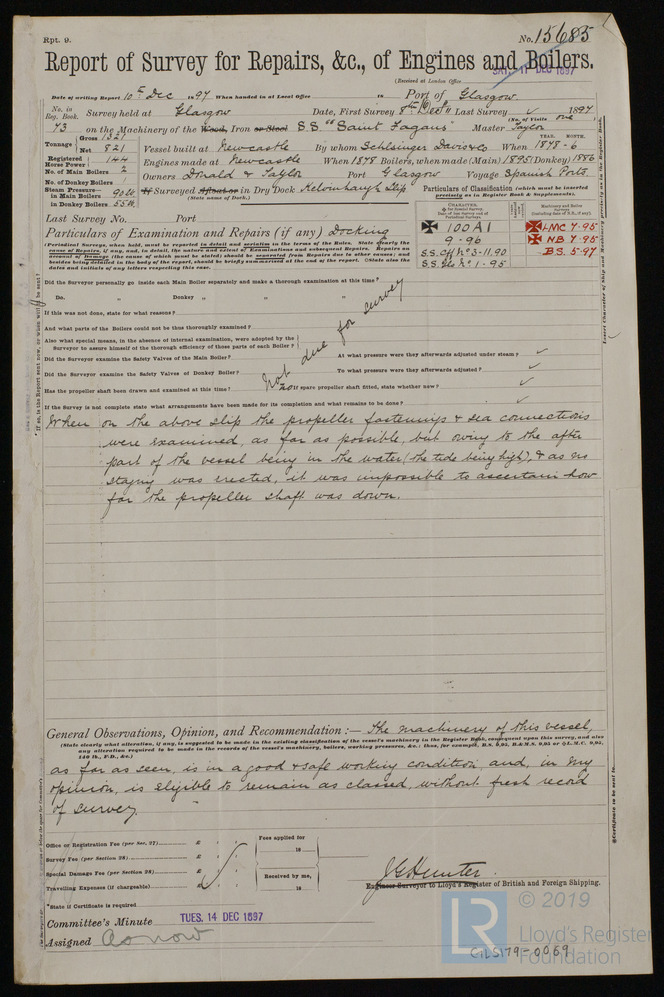 Rpt. 9.
No. 15685
Report of Survey for Repairs, &c., of Engines and Boilers.
(Received at London Office SAT. 11 DEC 1897
Date of writing Report 10th Dec 1897 When handed in at Local Office 18 Port of Glasgow
No. in Reg. Book. Survey held at Glasgow Date, First Survey Last Survey 1897
(No. of Visits one
73 on the Machinery of the Wood, Iron or Steel S.S. "Saint Fagans" Master Taylor
Tonnage Gross 1321
Net 821
Vessel built at Newcastle By whom Schlesinger Davis & Co When 1878-6
YEAR. MONTH.
Registered Horse Power 144
Engines made at Newcastle When 1878 Boilers, when made (Main) 1895 (Donkey) 1886
No. of Main Boilers 2
No. of Donkey Boilers 1
Owners Donald & Taylor Port Glasgow Voyage Spanish Ports
Steam Pressure in Main Boilers 90 lb
in Donkey Boilers 55 lb
If Surveyed Afloat or in Dry Dock Kelvinhaugh Slip
(State name of Dock.)
Particulars of Classification (which must be inserted precisely as in Register Book & Supplements).
CHARACTER.
100 A1
9-96
S.S. Cff No 3-11.90
S.S. Gls No 1-95
LMC 7-95
NB 7-95
BS. 5-97
Last Survey No. Port
Particulars of Examination and Repairs (if any) Docking
(Periodical Surveys, when held, must be reported in detail and seriatim in the terms of the Rules. State clearly the
cause of Repairs, if any, and, in detail, the nature and extent of Examinations and subsequent Repairs. Repairs on
account of Damage (the cause of which must be stated) should be separated from Repairs due to other causes; and
besides being detailed in the body of the report, should be briefly summarised at the end of the report. State also the
dates and initials of any letters respecting this case.
Did the Surveyor personally go inside each Main Boiler separately and make a thorough examination at this time?
Do. " Donkey " " "
If this was not done, state for what reasons?
And what parts of the Boilers could not be thus thoroughly examined?
Also what special means, in the absence of internal examination, were adopted by the
Surveyor to assure himself of the thorough efficiency of those parts of each Boiler?
not due for survey
Did the Surveyor examine the Safety Valves of the Main Boiler? At what pressure were they afterwards adjusted under steam?
Did the Surveyor examine the Safety Valves of Donkey Boiler? To what pressure were they afterwards adjusted?
Has the propeller shaft been drawn and examined at this time? no If spare propeller shaft fitted, state whether new?
If the Survey is not complete state what arrangements have been made for its completion and what remains to be done?
When on the above slip the propeller fastenings & sea connections
were examined, as far as possible, but owing to the after
part of the vessel being in the water (the tide being high), & as no
staging was erected, it was impossible to ascertain how
far the propeller shaft was down.
General Observations, Opinion, and Recommendation:— The machinery of this vessel,
(State clearly what alteration, if any, is suggested to be made in the existing classification of the vessel's machinery in the Register Book, consequent upon this survey, and also
any alteration required to be made in the records of the vessel's machinery, boilers, working pressures, &c.; thus, for example, B.S. 9,93, B.&M.S. 9,93 or L.M.C. 9,93,
140 lb., F.D., &c.)
as far as seen, is in a good & safe working condition, and, in my
opinion, is eligible to remain as classed, without fresh record
of survey.
Office or Registration Fee (per Sec. 27) £
Survey Fee (per Section 28) £
Special Damage Fee (per Section 28) £
Travelling Expenses (if chargeable) £
Fees applied for
18
Received by me,
18
J G Hunter.
Engineer Surveyor to Lloyd's Register of British and Foreign Shipping.
*State if Certificate is required
Committee's Minute TUES. 14 DEC 1897
Assigned As now
© 2019
LR
Lloyd's Register
Foundation
GLS179-0069